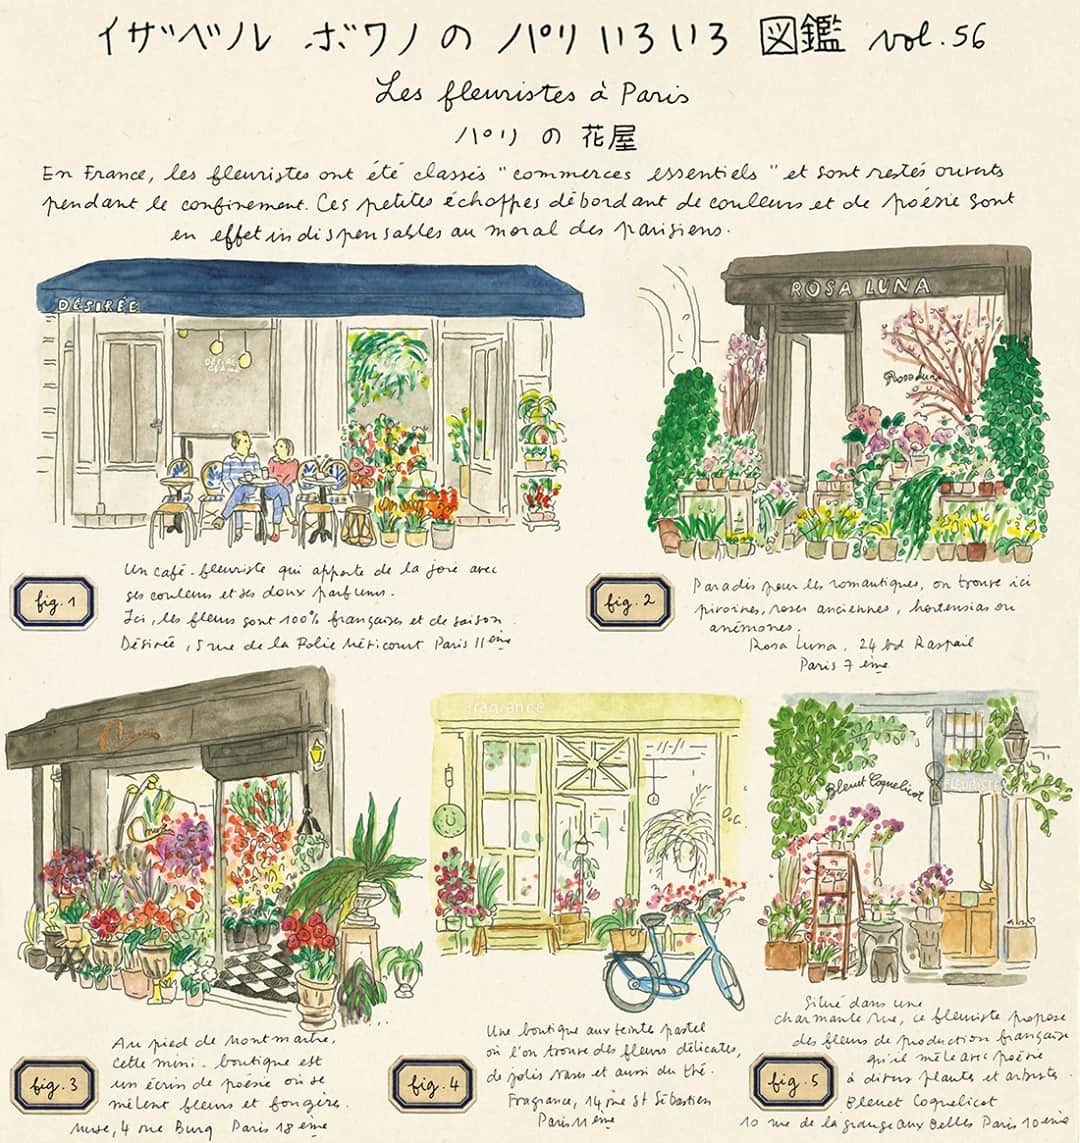 イザベル ボワノの パリいろいろ 図鑑 vol.56
Les fleuristes à Paris
パリ の 花屋
En France, les fleuristes ont été classés "commerces essentiels" et sont restés ouverts
pendant le confinement. Ces petites échoppes débordant de couleurs et de poésie sont
en effet indispensables au moral des parisiens.
DÉSIRÉE
ROSA LUNA
Rosa Luna
fig. 1
Un café-fleuriste qui apporte de la joie avec
ses couleurs et ses doux parfums.
Ici, les fleurs sont 100% françaises et de saison.
Désirée, 5 rue de la Folie Méricourt Paris 11ème
fig. 2
Paradis pour les romantiques, on trouve ici
pivoines, roses anciennes, hortensias ou
anémones.
Rosa Luna, 24 bd Raspail
Paris 7ème
fragrance
Bleuet Coquelicot
fig. 3
Au pied de Montmartre,
cette mini-boutique est
un écrin de poésie où se
mêlent fleurs et fougères.
Muse, 4 rue Burq Paris 18ème
fig. 4
Une boutique aux teinte pastel
où l'on trouve des fleurs délicates,
de jolis vases et aussi du thé.
Fragrance, 14 rue St Sébastien
Paris 11ème
fig. 5
Situé dans une
charmante rue, ce fleuriste propose
des fleurs de production française
qu'il mêle avec poésie
à divers plantes et arbustes.
Bleuet Coquelicot
10 rue de la grange aux Belles Paris 10ème